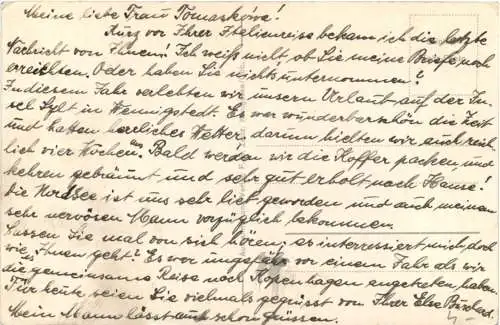 Meine liebe Frau Tomaskova!
Kurz vor Ihrer Italienreise bekam ich die letzte
Nachricht von Ihnen! Ich weiß nicht, ob Sie meine Briefe noch
erreichten. Oder haben Sie nichts unternommen?
In diesem Jahr verlebten wir unseren Urlaub auf der In-
sel Sylt in Wennigstedt. Es war wunderbar schön die Zeit
und hatten herrliches Wetter darum hielten wir auch reich-
lich vier Wochen aus. Bald werden wir die Koffer packen und
kehren gebräunt und sehr gut erholt nach Hause!
Die Nordsee ist uns sehr lieb geworden und auch meinem
sehr nervösen Mann vorzüglich bekommen.
Lassen Sie mal von sich hören; es interressiert mich doch
wie es Ihnen geht? Es war ungefähr vor einem Jahr als wir
die gemeinsame Reise nach Kopenhagen angetreten haben.
Für heute seien Sie vielmals gegrüsst von Ihrer Else
Mein Mann lässt auch schön grüssen.